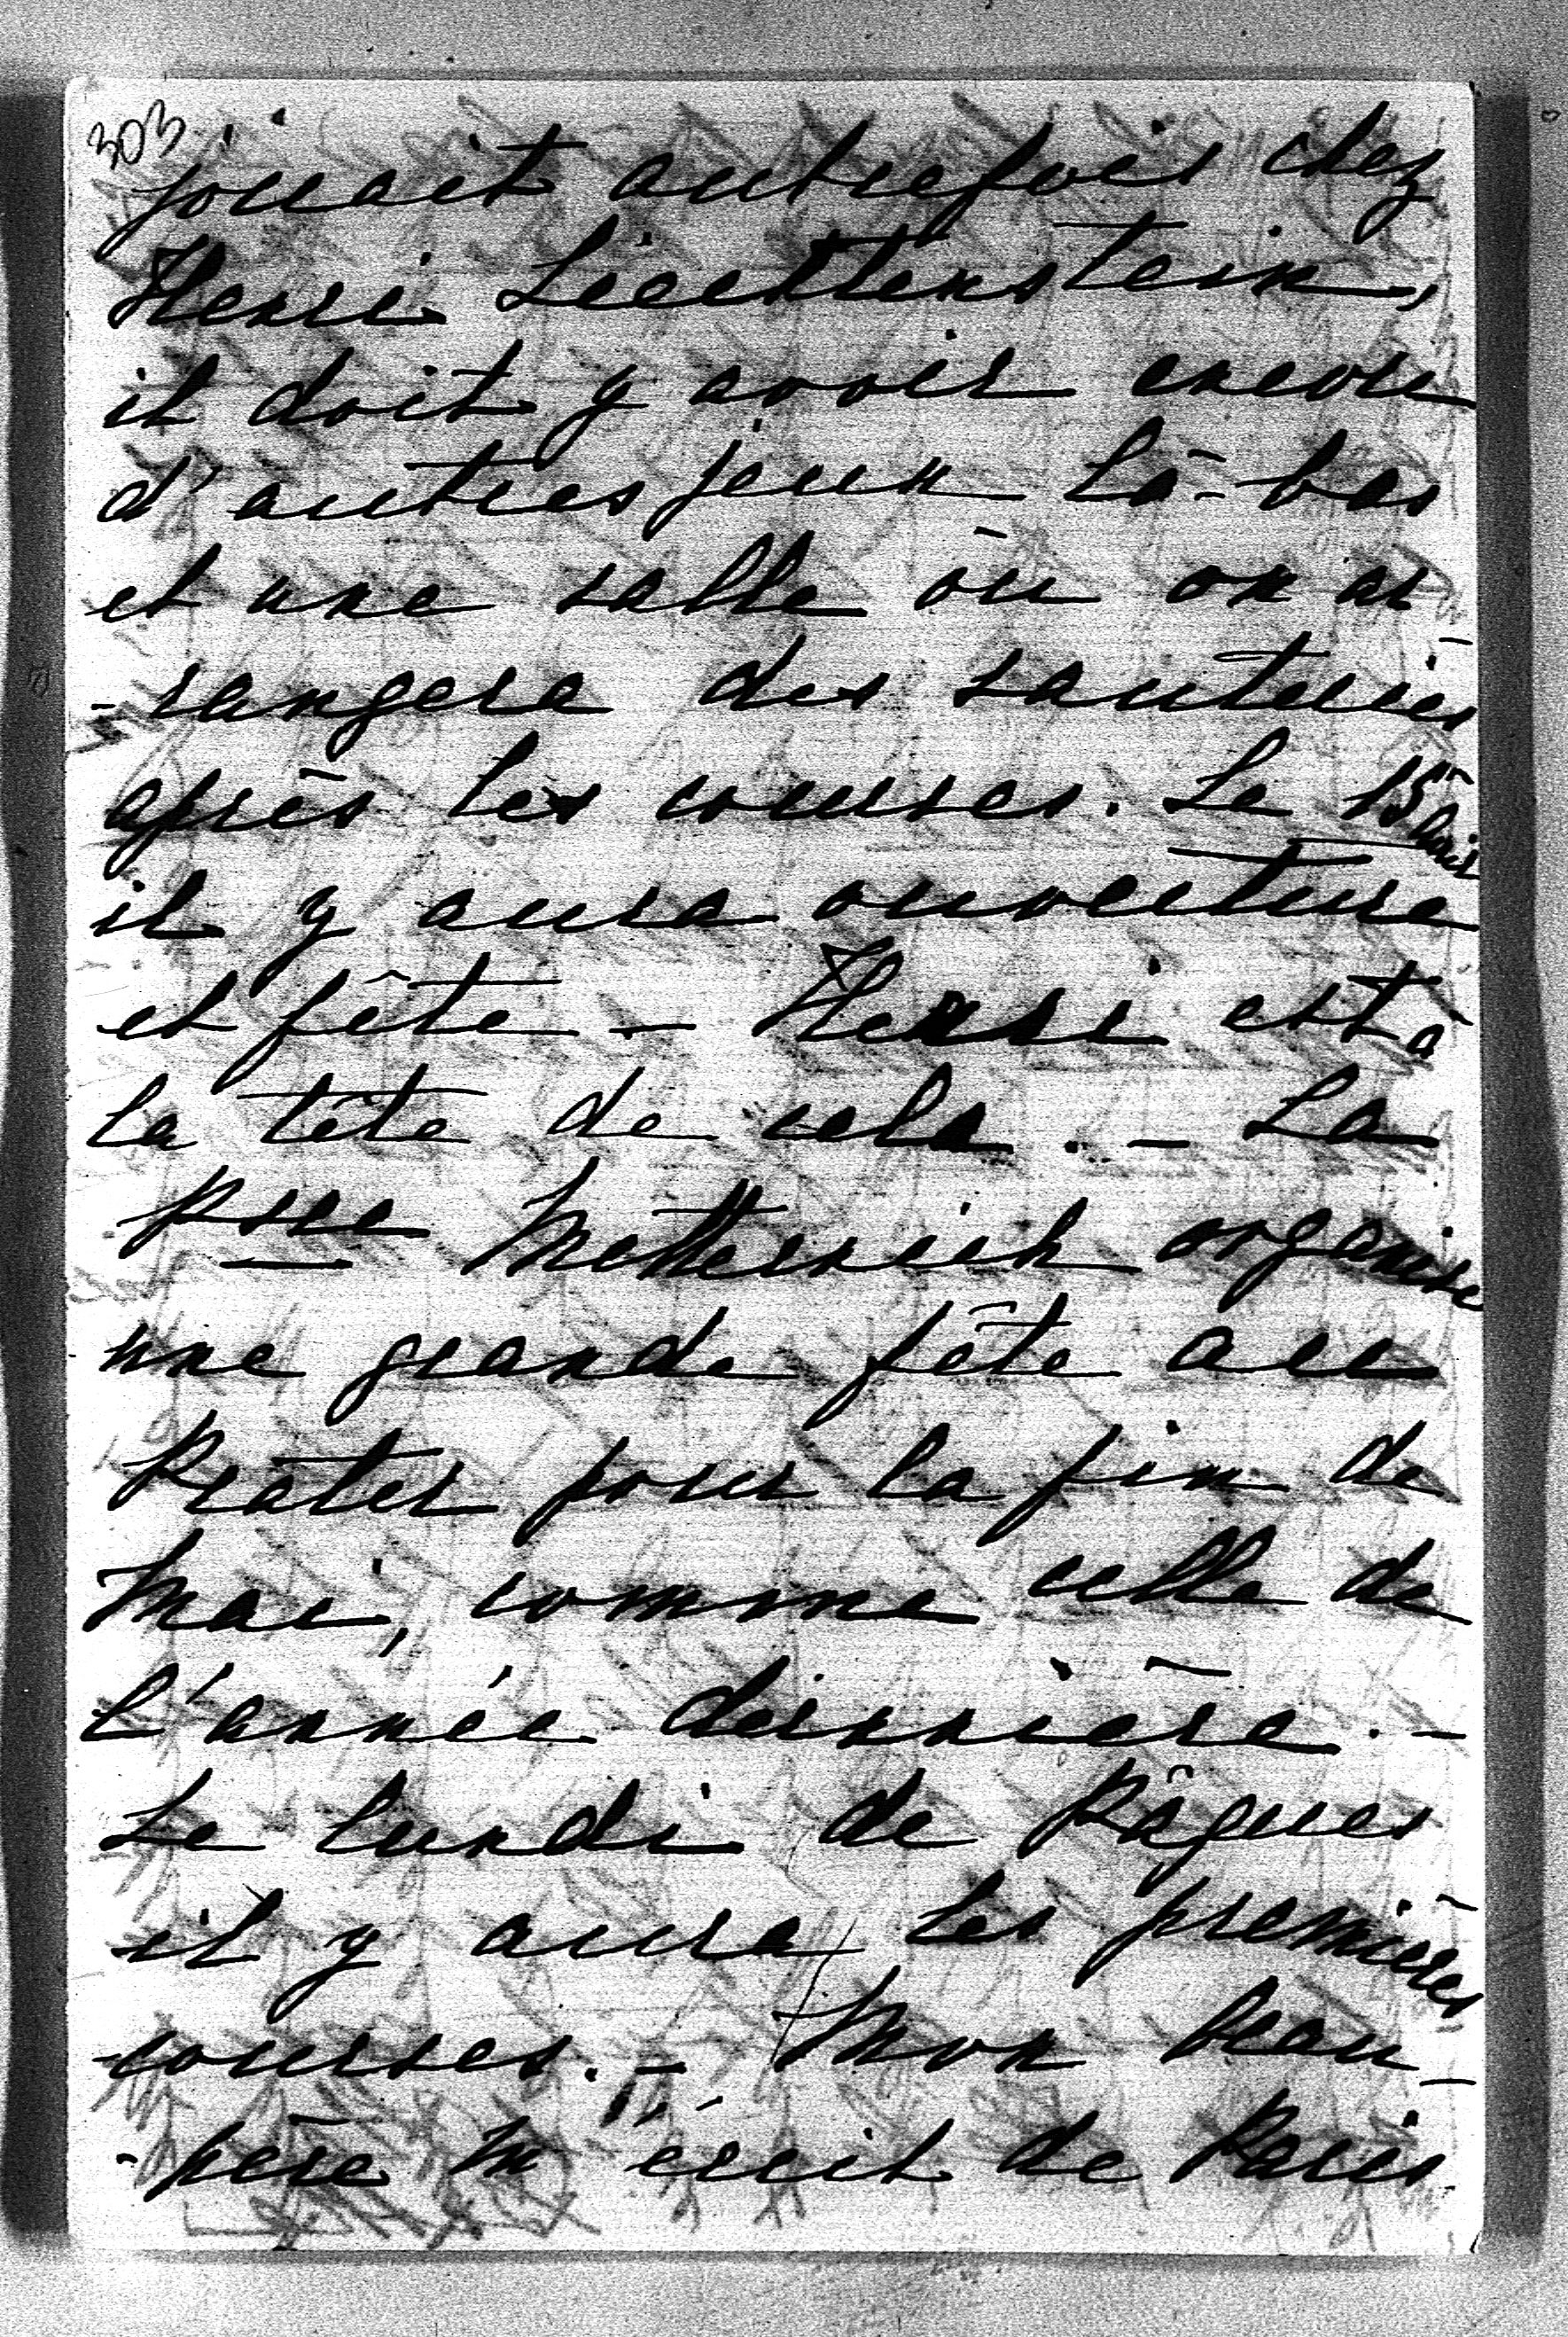 303
jouait autrefois chez
Henri Liechtenstein,
il doit y avoir encore
d'autres jeux là-bas
et une salle où on ar
-rangera des sauteries
après les courses. Le 15
il y aura ouverture
et fête - Henri est à
la tête de cela. - La
Psse Metternich organise
une grande fête au
Prater pour la fin de
Mai, comme celle de
l'année dernière. -
Le lundi de Pâques
il y aura les premières
courses. - Mon beau-
-père m'écrit de Paris